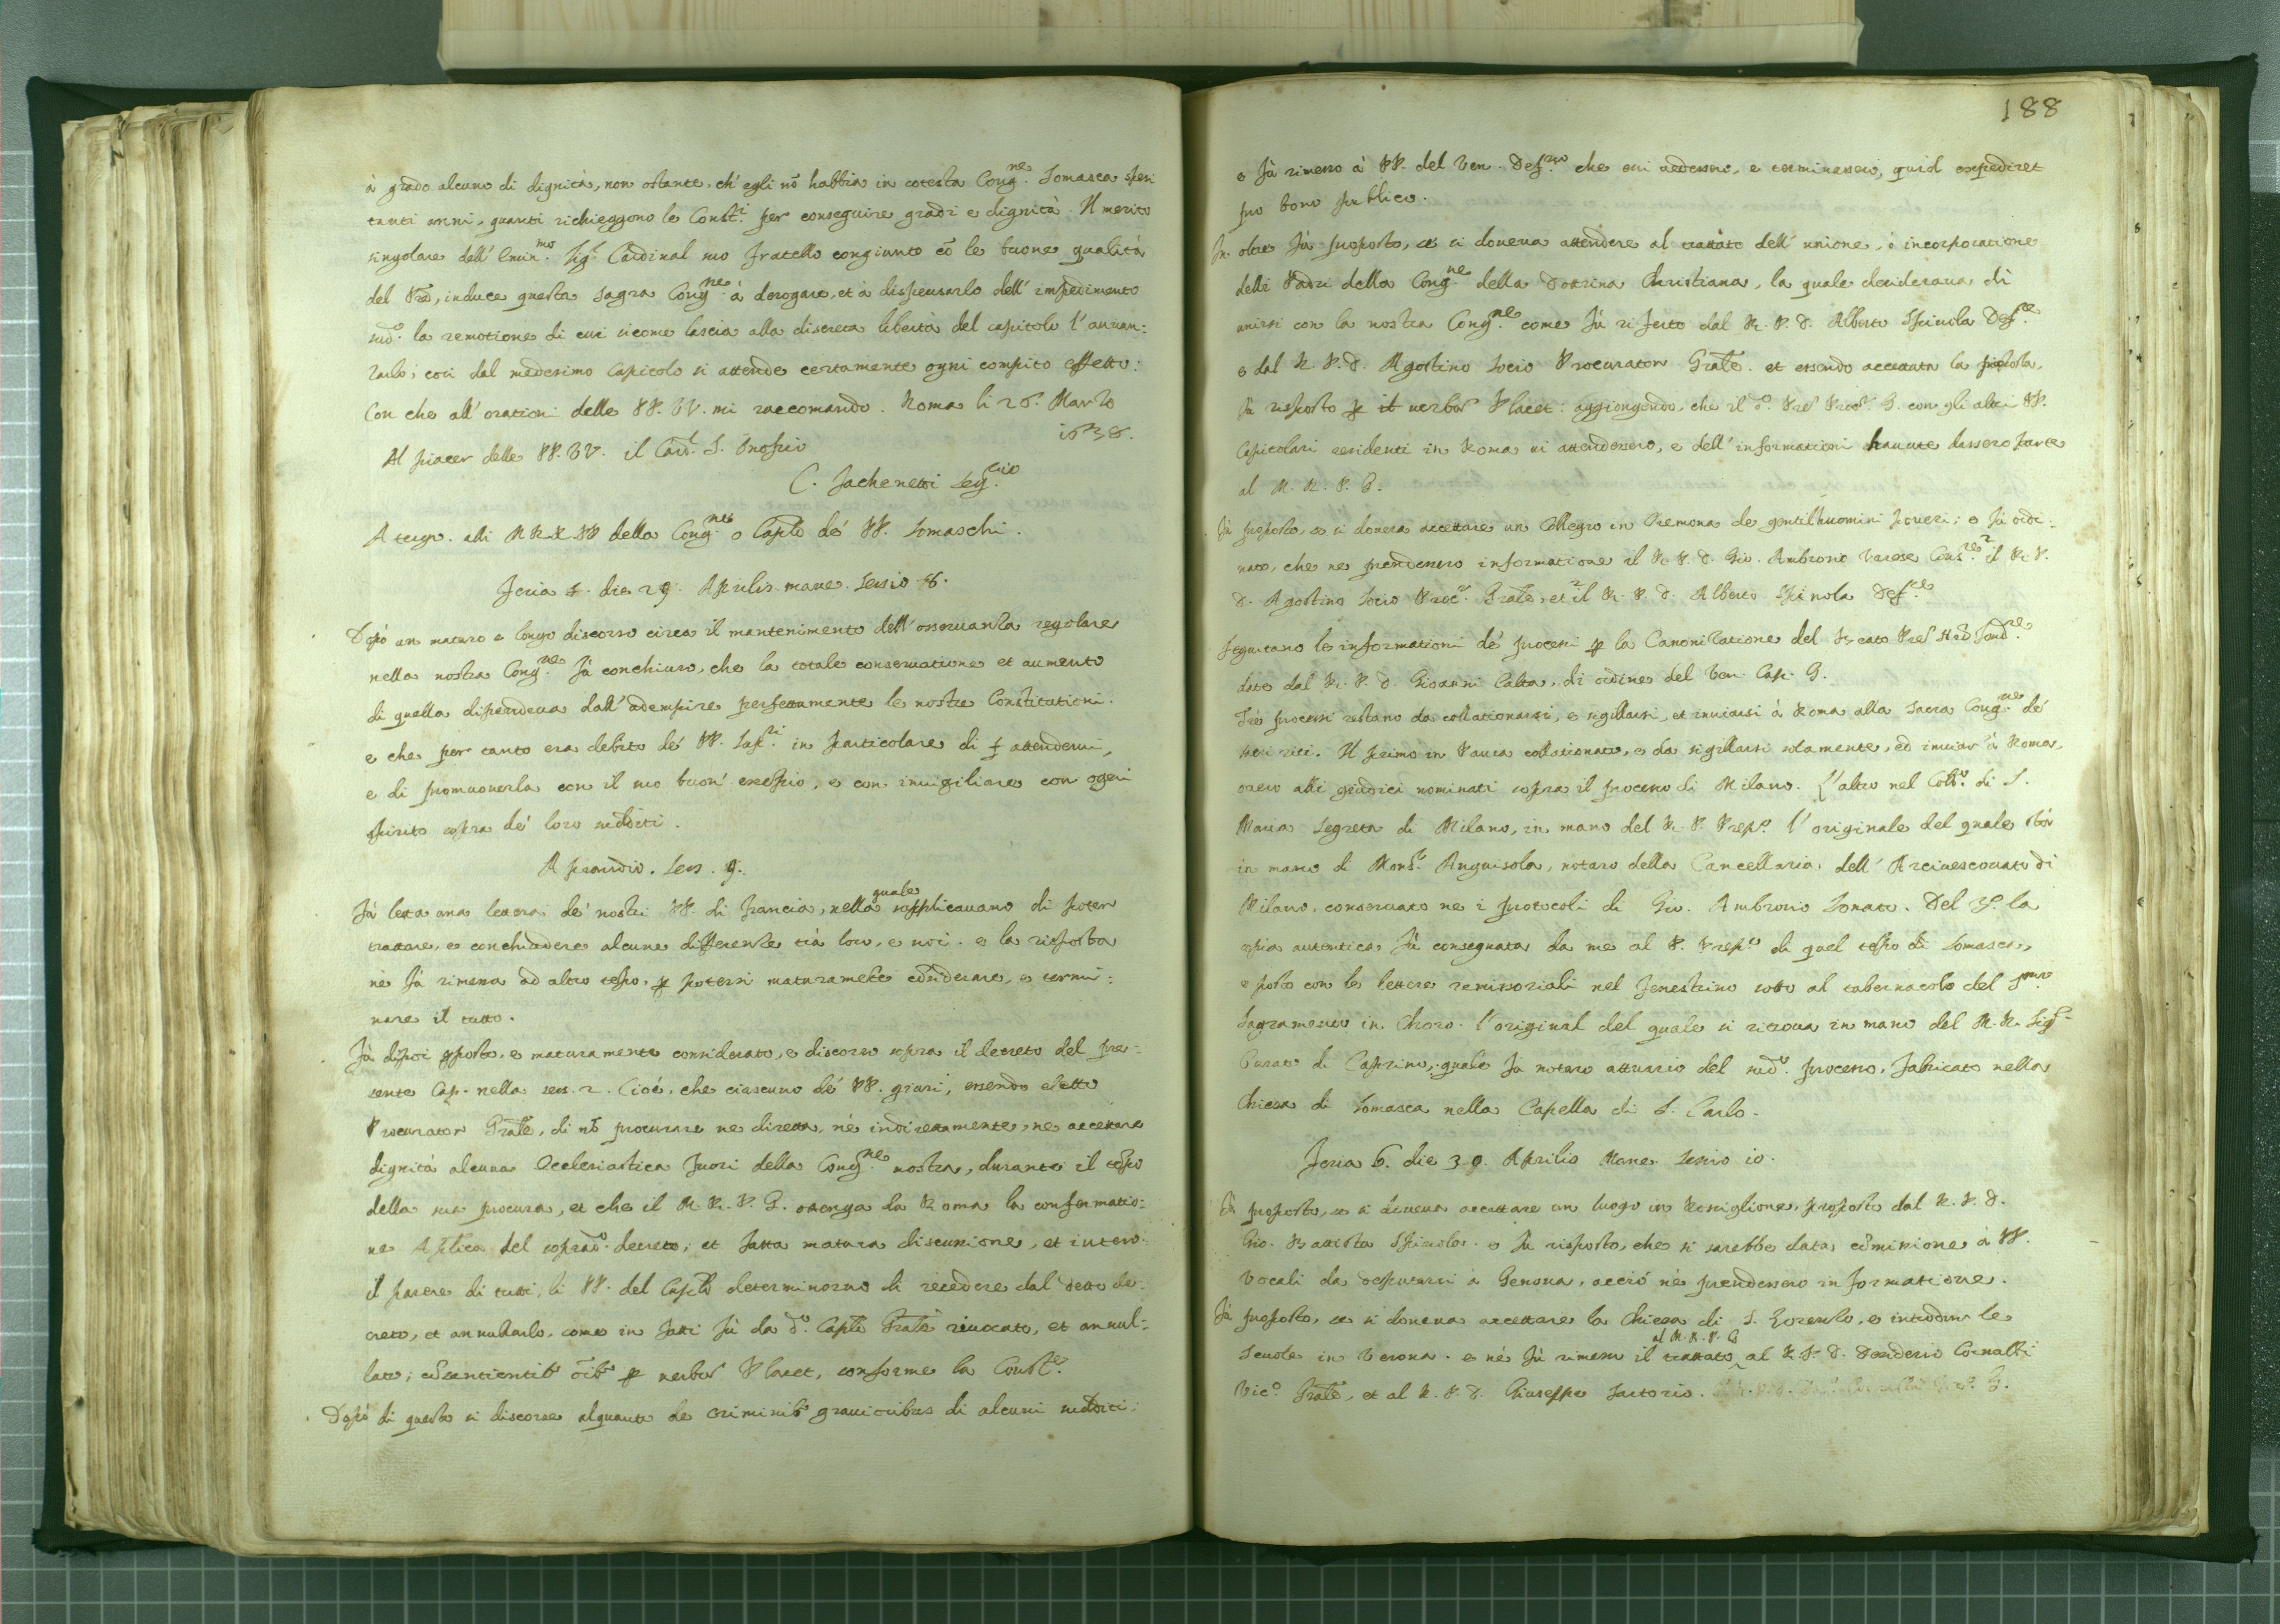 à grado alcuno di dignità, non ostante, ch'egli nō habbia in cotesta Cong.ne Somasca spesi
tanti anni, quanti richieggono le Const.i per conseguire gradi e dignità. Il merito
singolare dell'Emin.mo Sig.r Cardinal suo fratello congiunto cō le buone qualità
del Prē, induce questa Sagra Cong.ne à derogare, et à dispensarlo dell'impedimento
sud.o la remotione di cui sicome lascia alla discreta libertà del capitolo l'auan:
zarlo; così dal medesimo Capitolo si attende certamente ogni compito effetto:
Con che all'orationi delle PP. VV. mi raccomando. Roma li 26. Marzo
1638.
Al piacer delle PP. VV. il Card.l S. Onofrio
C. Fachenetti Seg.rio
A tergo. alli M RR PP della Cong.ne o Caplo de' PP. Somaschi.
Feria 5. die 29. Aprilis mane. Sessio 8.
Dopò un maturo e longo discorso circa il mantenimento dell'osseruanza regolare
nella nostra Cong.ne fù conchiuso, che la totale conseruatione et aumento
di quella dipendeua dall'adempire perfettamente le nostre Constitutioni.
e che per tanto era debito de' PP. Sup.ri in particolare di attenderui,
e di promuouerla con il suo buon' esempio, e con inuigiliare con ogni
spirito sopra de' loro sudditi.
A prandio. Sess. 9.
Fù letta una lettera de' nostri PP. di Francia, nella quale supplicauano di poter
trattare, e conchiudere alcune differenze trà loro, e noi. e la risposta
nè fù rimessa ad altro tēpo, ꝑ potersi maturamēte cōsiderare, e termi:
nare il tutto.
Fù dipoi ꝓposto, e maturamente considerato, e discorso sopra il decreto del pre:
sente Cap. nella sess. 2. Cioè, che ciascuno de' PP. giuri, essendo eletto
Procurator Grale, di nō procurare ne diretta, nè indirettamente, ne accettare
dignità alcuna Ecclesiastica fuori della Cong.ne nostra, durante il tēpo
della sua procura, et che il M. R. P. G. ottenga da Roma la confermatio:
ne Aplica del soprad.o decreto; et fatta matura discussione, et inteso
il parere di tutti, li PP. del Caplo determinorno di recedere dal detto de:
creto, et annullarlo, come in fatti fù da d.o Caplo Grale riuocato, et annul:
lato; cōsentientib' oib' ꝑ uerbū Placet, conforme la Const.e
Dopò di questo si discorse alquanto de criminib' grauioribus di alcuni sudditi;
188
e fù rimesso à PP. del Ven. Def.rio che essi uedessero, e terminassero, quid expediret
pro bono publico.
In oltre fù proposto, se si doueua attendere al trattato dell'unione, ò incorporatione
delli Padri della Cong.ne della Dottrina Christiana, la quale desideraua di
unirsi con la nostra Cong.ne come fù riferto dal R. P. D. Alberto Spinola Def.re
e dal R. P. D. Agostino Socio Procurator Grale. et essendo accettata la proposta,
fù risposto ꝑ il uerbū Placet: aggiongendo, che il d.o Prē Proc.r G. con gli altri PP.
Capitolari residenti in Roma ui attendessero, e dell'informationi hauute dassero parte
al M. R. P. G.
Fù proposto, se si douea accettare un Collegio in Cremona de gentilhuomini poueri; e fù ordi:
nato, che ne prendessero informatione il R. P. D. Gio. Ambrosio Varese Cons.re il R. P.
D. Agostino Socio Proc.r Grale, et il R. P. D. Alberto Spinola Def.re
Seguitano le informationi de' processi ꝑ la Canonizatione del Beato Prē Nrō Fond.re
date dal R. P. D. Giouanni Calta, di ordine del Ven. Cap. G.
Trè processi restano da collationarsi, e sigillarsi, et inuiarsi à Roma alla Sacra Cong.ne de'
sacri riti. Il primo in Pauia collationato, e da sigillarsi solamente, ed inuiar à Roma,
ouero alli giudici nominati sopra il processo di Milano. L'altro nel Coll.o di S.
Maria Segreta di Milano, in mano del R. P. Prep.o l'originale del quale stà
in mano di Mons.r Anguisola, notaro della Cancellaria dell'Arciuescouato di
Milano, conseruato ne i protocoli di Gio. Ambrosio Sonato. Del 3.o la
copia autentica fù consegnata da me al P. Prep.to di quel tēpo di Somasca,
e posto con le lettere remissoriali nel fenestrino sotto al tabernacolo del S.mo
Sagramento in Choro. l'original del quale si ritroua in mano del M. R. Sig.r
Curato di Caprino, quale fù notaro attuario del sud.o processo, fabricato nella
Chiesa di Somasca nella Capella di S. Carlo.
Feria 6. die 30. Aprilis Mane. Sessio 10.
Fù proposto, se si doueua accettare un luogo in Ronsiglione, proposto dal R. P. D.
Gio. Battista Spinola. e fù risposto, che si sarebbe data cōmissione à PP.
Vocali da deputarsi à Genoua, acciò nè prendessero informatione.
Fù proposto, se si doueua accettare la Chiesa di S. Lorenzo, e introdur le
Scuole in Verona. e nè fù rimesso il trattato al M. R. P. G al R. P. D. Desiderio Cornalbi
Vic.o Grale, et al R. P. D. Giuseppe Sartorio.